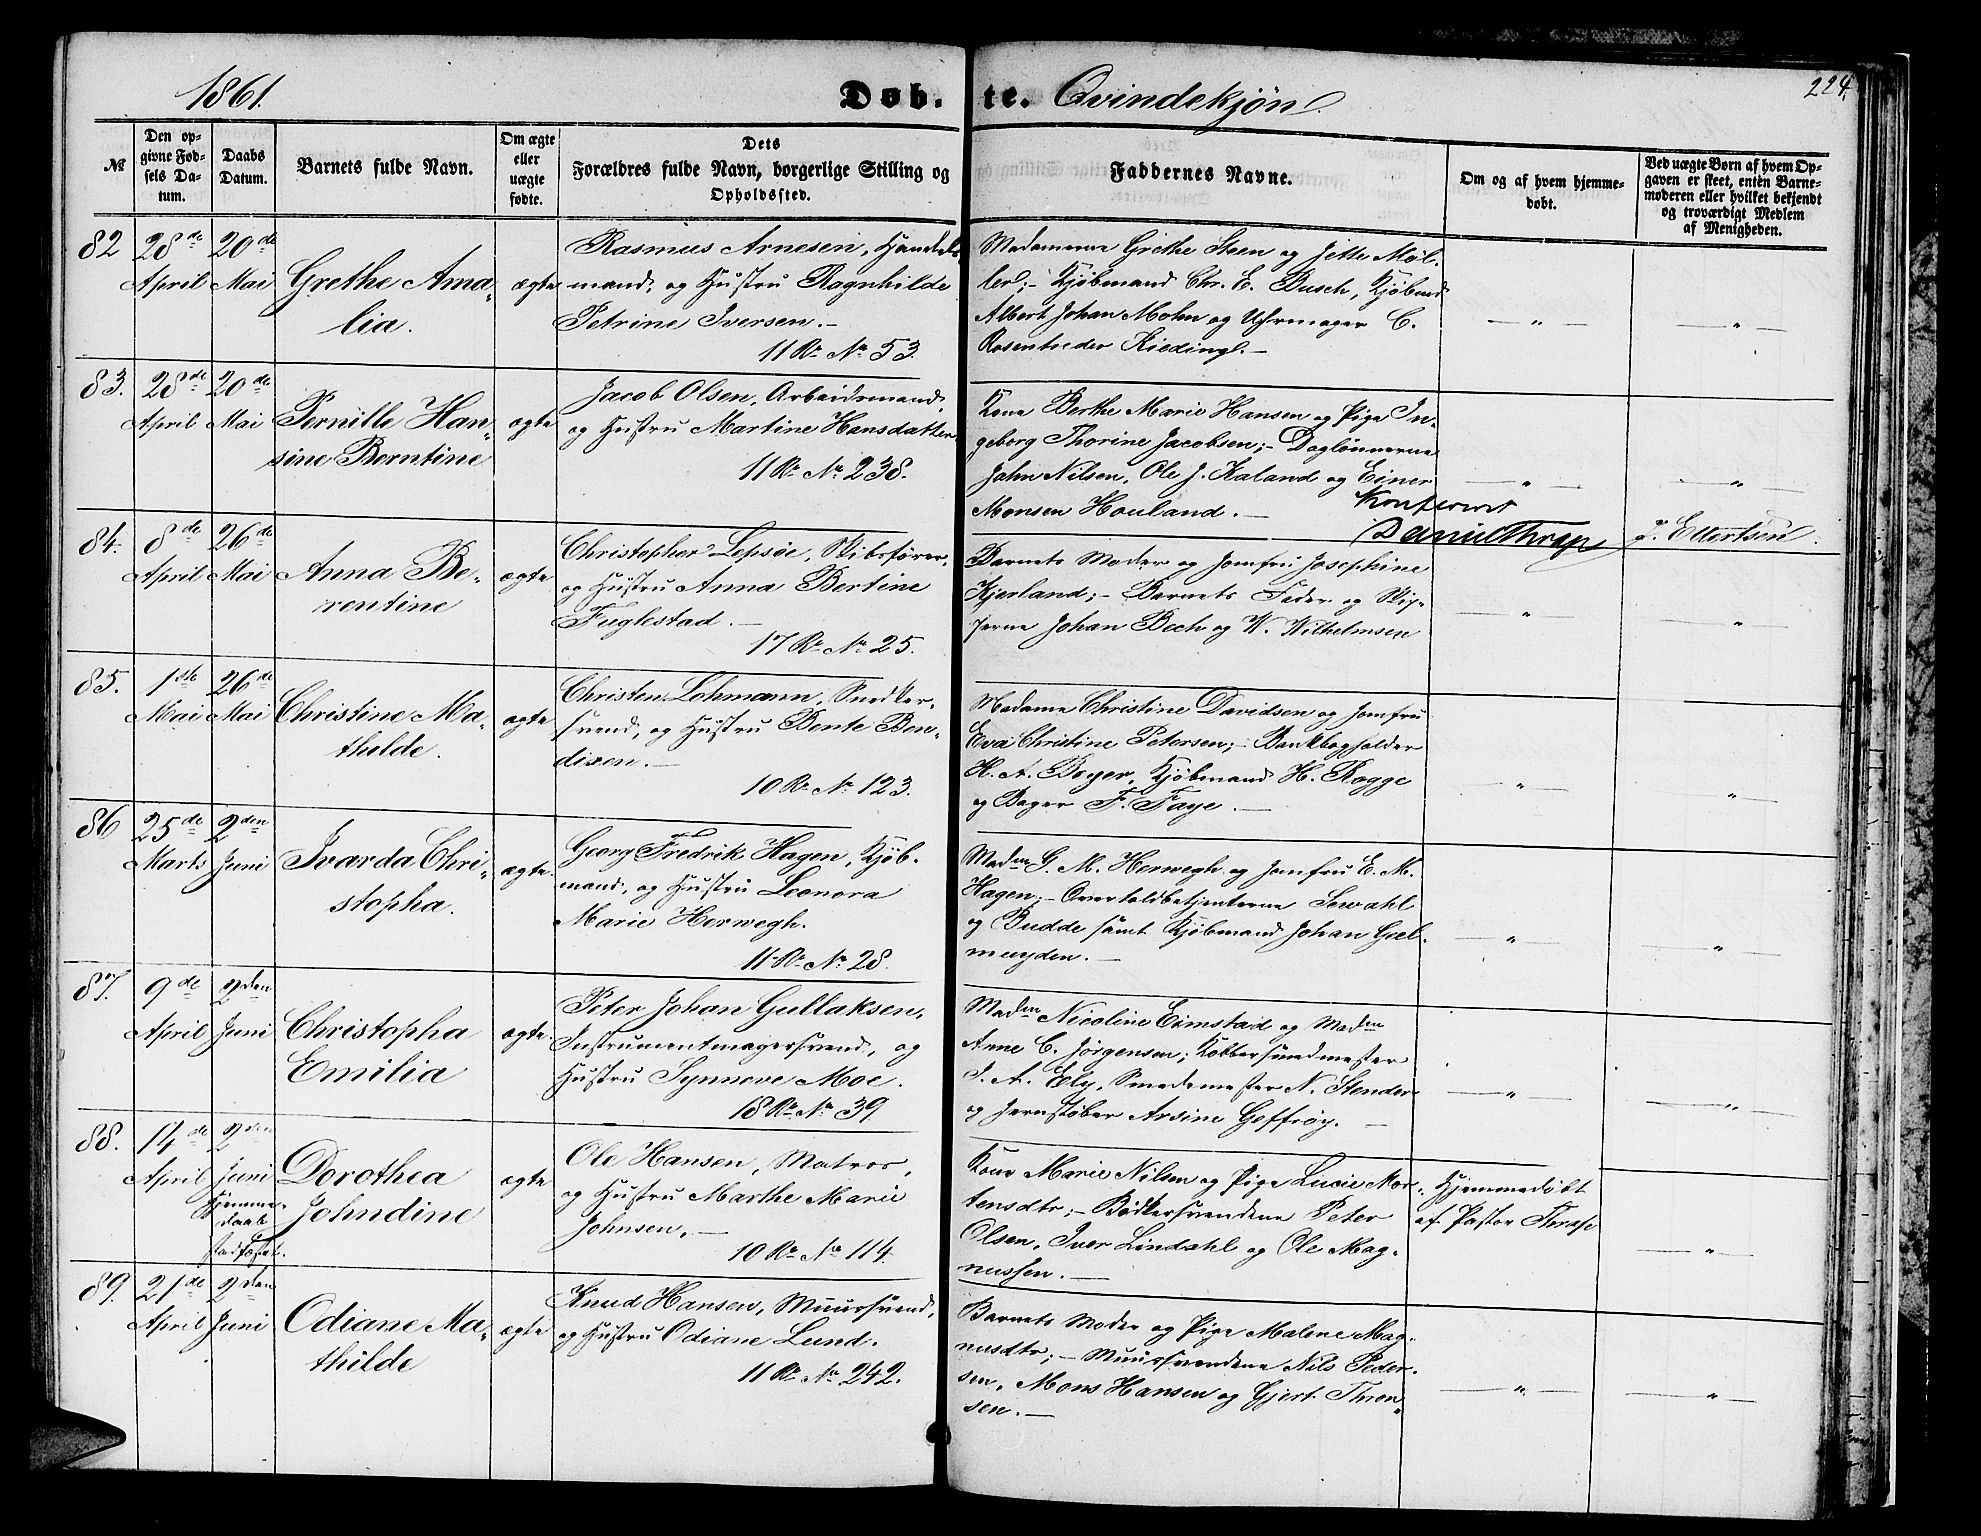 1861.
Døb-te. Qvindekjøn.
224.
No
Den op-
givne Fød-
sels Da-
tum.
Daabs
Datum.
Barnets fulde Navn.
Om ægte
eller
uægte
fødte.
Dets
Forældres fulde Navn, borgerlige Stilling og
Opholdssted.
Faddernes Navne.
Om og af hvem hjemme-
døbt.
Ved uægte Børn af hvem Op-
gaven er skeet, enten Barne-
moderen eller hvilket bekjendt
og troværdigt Medlem
af Menigheden.
82
28de
April
20de
Mai
Grethe Ama-
lia.
ægte
Rasmus Arnesen, Handels-
mand, og Hustru Ragnhilde
Petrine Iversen.-
11 R. No 53.
Madamerne Grethe Steen og Jette Møl-
ler;- Kjøbmand Chr. E. Busch, Kjøbmd
Albert Johan Mohn og Uhrmager C.
Kiedingl.-
— „ —
— „ —
83.
28de
April
20de
Mai
Pernille Han-
sine Berntine
ægte
Jacob Olsen, Arbeidsmand,
og Hustru Martine Hansdatter
11 R. No 238.
Kone Berthe Marie Hansen og Pige In-
geborg Thorine Jacobsen;- Daglønnerne
John Nilsen, Ole J. Kaland og Einer
Monsen Houland.-
— „ —
— „ —
Konfereret
Daniel Thrap
Ellertsen.
84.
8de
April
26de
Mai
Anna Be-
rentine
ægte
Christopher Lepsøe, Skibsfører,
og Hustru Anna Bertine
Fuglestad.-
17 R. No 25.
Barnets Moder og Jomfru Josephine
Kjerland;- Barnets Fader og Skip-
perne Johan Bech og W. Wilhelmsen
— „ —
— „ —
85.
1ste
Mai
26de
Mai
Christine Ma-
thilde.
ægte
Christen Lohmann, Snedker-
svend, og Hustru Bente Ben-
dixen.-
10 R. No 123.
Madame Christine Davidsen og Jomfru
Eva Christine Petersen;- Bankbogholder
H. A. Boyer, Kjøbmand H. Rogge
og Bager F. Faye.-
— „ —
— „ —
86
25de
Marts
2den
Juni
Ivarda Chri-
stopha.
ægte.
Georg Fredrik Hagen, Kjøb-
mand, og Hustru Leonora
Marie Herwegh.
11 R. No 28.
Madme G. M. Herwegh og Jomfru E. M.
Hagen;- Overtoldbetjenterne Sewahl
og Budde samt Kjøbmand Johan Gæl-
muyden.-
— „ —
— „ —
87.
9de
April
2den
Juni
Christopha
Emilia
ægte.
Peter Johan Gullaksen,
Instrumentmagersvend, og
Hustru Synneve Moe.
18 R. No 39.
Madme Nicoline Eimstad og Madme
Anne C. Jørgensen; Kobbersmedmester
I. A. Ely, Smedemester N. Stender
og Jernstøber Arsine Geffrøy.-
— „ —
— „ —
88.
14de
April
2den
Juni
Hjemme-
daab
stadfæstet.
Dorothea
Johndine
ægte
Ole Hansen, Matros,
og Hustru Marthe Marie
Johnsen.-
10 R. No 114.
Kone Marie Nilsen og Pige Lucie Mor-
tensdtr;- Bødkersvendene Peter
Olsen, Iver Lindahl og Ole Mag-
nussen.-
Hjemmedøbt
af Pastor Thrap
— „ —
89.
21de
April
2den
Juni
Odiane Ma-
thilde
ægte
Knud Hansen, Muursvend,
og Hustru Odiane Lund.
11 R. No 242.
Barnets Moder og Pige Malene Mag-
nusdtr;- Muursvendene Nils Peder-
sen, Mons Hansen og Gjert Thron-
sen.-
— „ —
— „ —